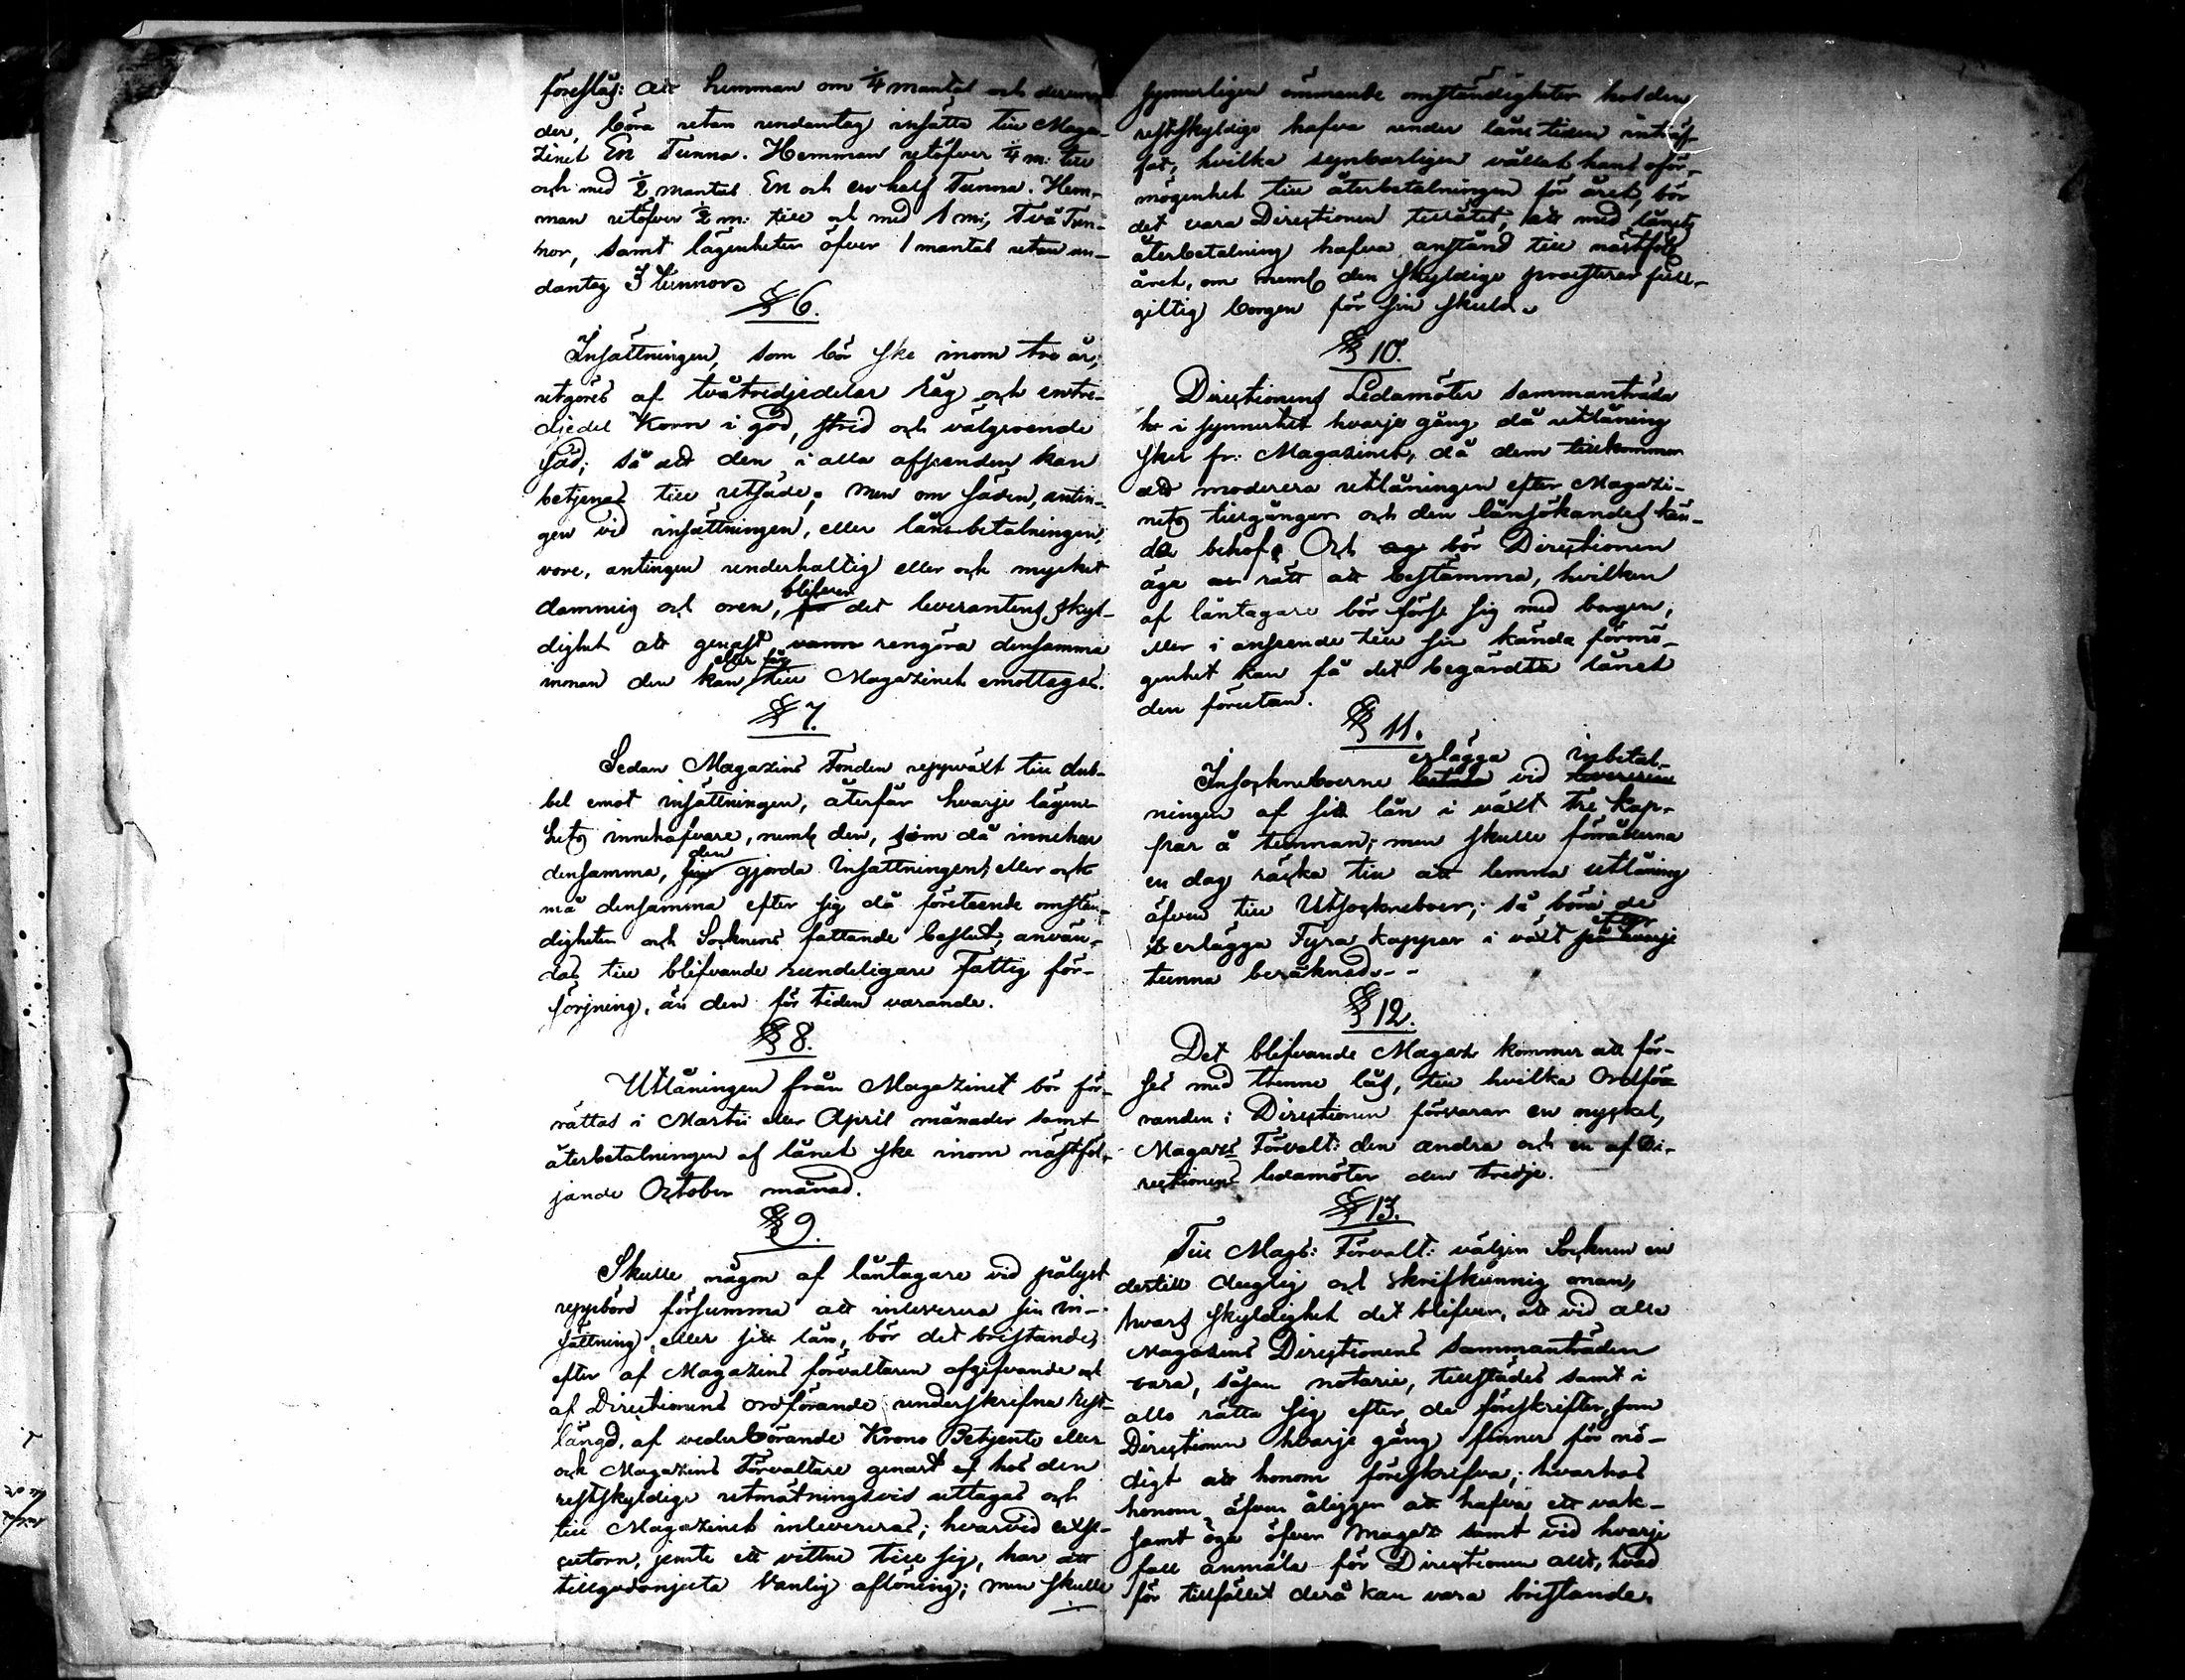 föreslås: att hemman om 1/4 mantal och derun
der, böra utan undantag insätta till Maga-
zinet En Tunna. Hemman utöfver 1/4 m: till
och med 1/2 mantal En och en half Tunna. Hem-
man utöfver 1/2 m: till och med 1 m:, Två Tun-
nor, samt lägenheter öfver 1 mantal utan un-
dantag 3 tunnor.
§ 6.
Insättningen, som bör ske inom tvo år,
utgöres af tvåtredjedelar Råg och entre-
djedel Korn i god, strid och välgroende
säd; så att den i alla afseenden kan
betjenas till utsäde; men om säden, antin-
gen vid insättningen, eller lånebetalningen,
vore, antingen underhaltig eller och mycket
dammig och oren, blifver det leverantens skyl-
dighet att genast vann rengöra densamma
innan den kan eller får till Magazinet emottagas.
§ 7.
Sedan Magazins Fonden uppväxt till dub-
bel emot insättningen, återfår hvarje lägen-
hets innehafvare, neml: den, som då innehar
densamma, den gjorda insättningen; eller och
må densamma efter sig då företeende omstän-
digheter och Socknens fattande beslut, använ-
das till blifvande rundeligare Fattig för-
sörjning, än den för tiden varande.
§ 8.
Utlåningen från Magazinet bör för-
rättas i Martii eller April månader samt
återbetalningen af lånet ske inom nästföl-
jande October månad.
§ 9.
Skulle någon af låntagare vid pålyst
uppbörd försumma att inleverera sin in-
sättning, eller sitt lån, bör det bristande,
efter af Magazins förvaltaren afgifvande och
af Directionens ordförande underskrefna Rest-
längd, af vederbörande Krono Betjente eller
och Magazins Förvaltare genast af hos den
restskyldige utmätningsvis uttagas och
till Magazinet inlevereras; hvarvid exse-
cutorn, jemte ett vittne till sig, har att
tillgodonjuta vanlig aflöning; men skulle
synnerligen ömmande omständigheter hos den
restskyldige hafva under låne tiden inträf-
fat, hvilka synbarligen vållat hans oför-
mögenhet till återbetalningen för året, bör
det vara Directionen tillåtet, att med lånets
återbetalning hafva anstånd till nästfölj
året, om neml: den skyldige presterar full-
giltig borgen för sin skuld.
§ 10.
Directionens Ledamöter sammanträda
i synnerhet hvarje gång då utlåning
sker fr: Magazinet, då dem tillkommer
att moderera utlåningen efter Magazi-
nets tillgångar och den lånsökandes kän-
da behof. Och bör Directionen
äga rätt att bestämma, hvilken
af låntagare bör förse sig med borgen,
eller i anseende till sin kända förmö-
genhet kan få det begärdta lånet
den förutan.
§ 11.
Insockneboerne erlägga betala vid inbetal-
ningen af sitt lån i växt Tre kap-
par å tunnan; men skulle förråderna
en dag räcka till att lemna utlåning
äfven till Utsockneboer, så böra de
erlägga Fyra kappar i växt på hvarje
tunna beräknad. - -
§ 12.
Det blifvande Magaz: kommer att för-
ses med trenne lås, till hvilka Ordföra
randen i Directionen förvarar en nyckel,
Magaz: Förvalt: den andra och en af Di-
rectionens ledamöter den tredje.
§ 13.
Till Magz: Förvalt: väljer Socknen en
dertill duglig och skrifkunnig man,
hvars skyldighet det blifver, att vid alla
Magazins Directionens sammanträden
vara, såsom notarie, tillstädes samt i
allo rätta sig efter de föreskrifter, som
Directionen hvarje gång finner för nö-
digt att honom föreskrifva; hvarhos
honom äfven åligger att hafva ett vak-
samt öga öfver Magaz: samt vid hvarje
fall anmäla för Directionen allt, hvad
för tillfället derå kan vara bristande.